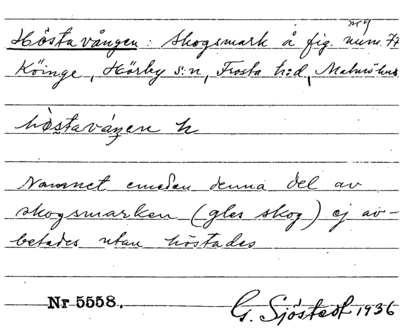 Höstavången: Skogsmark å fig. num. 77
Köinge, Hörby s:n, Frosta h:d, Malmöhus
Namnet emedan denna del av
skogsmarken (gles skog) ej av-
betades utan höstades
Nr 5558. G. Sjöstedt 1936